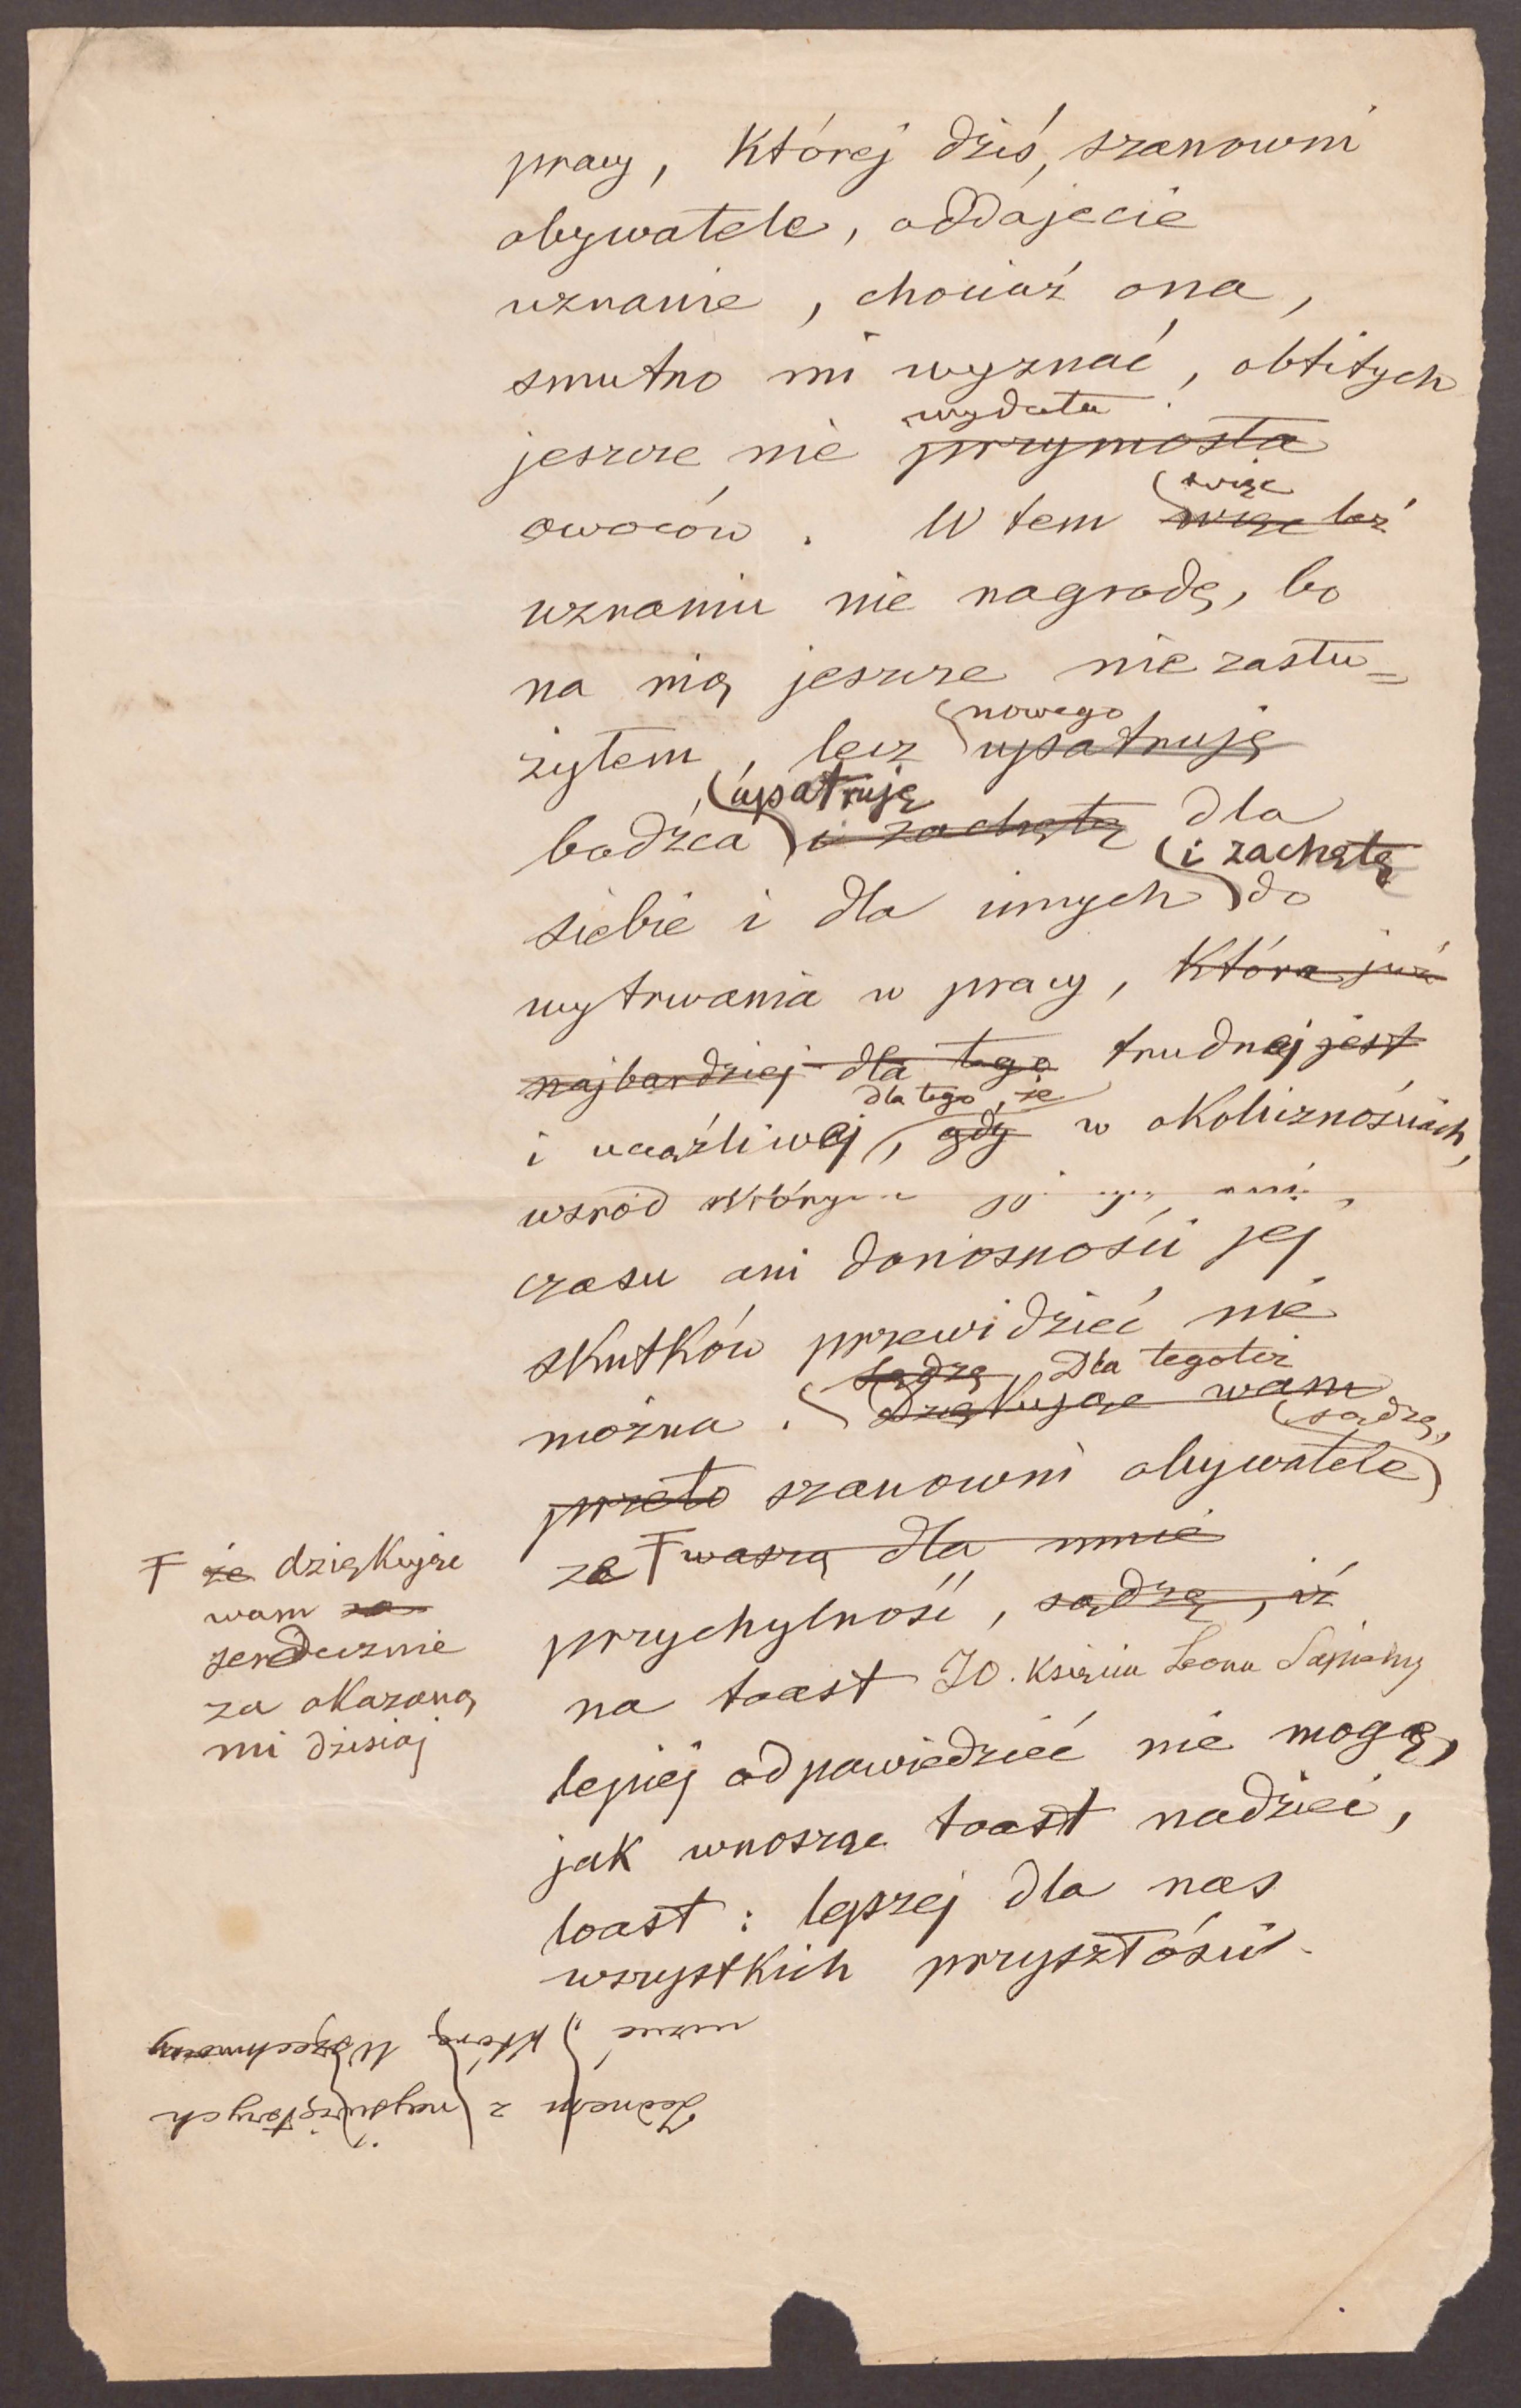 pracy, której dziś, szanowni
obywatele, oddajecie
uznanie, chociaż ona,
smutno mi wyznać, obfitych
wydała
jeszcze nie przyniosła
więc
owoców. W tem więc też
uznaniu nie nagrodę, bo
na nią jeszcze nie zasłu=
nowego
żyłem, lecz upatruję
upatruję
bodźca i zachętę dla
i zachętę
siebie i dla innych do
wytrwania w pracy, która już
najbardziej dla tego trudnej jest
dla tego, że
i uciążliwej, gdy w okolicznościach,
wśród których ani
czasu ani doniosłości jej
skutków przewidzieć nie
sądzę, Dla tegoteż
można. Dziękując wam
sądzę,
przeto szanowni obywatele
że waszą dla mnie
przychylność, sądzę, iż
na toast JO. Księcia Leona Sapiehy
lepiej odpowiedzieć nie mogę,
jak wnosząc toast nadziei,
toast: lepszej dla nas
wszystkich przyszłości.
że dziękując
wam za
serdecznie
za okazaną
mi dzisiaj
Jednem z najświętszych
którą Wszechmocny